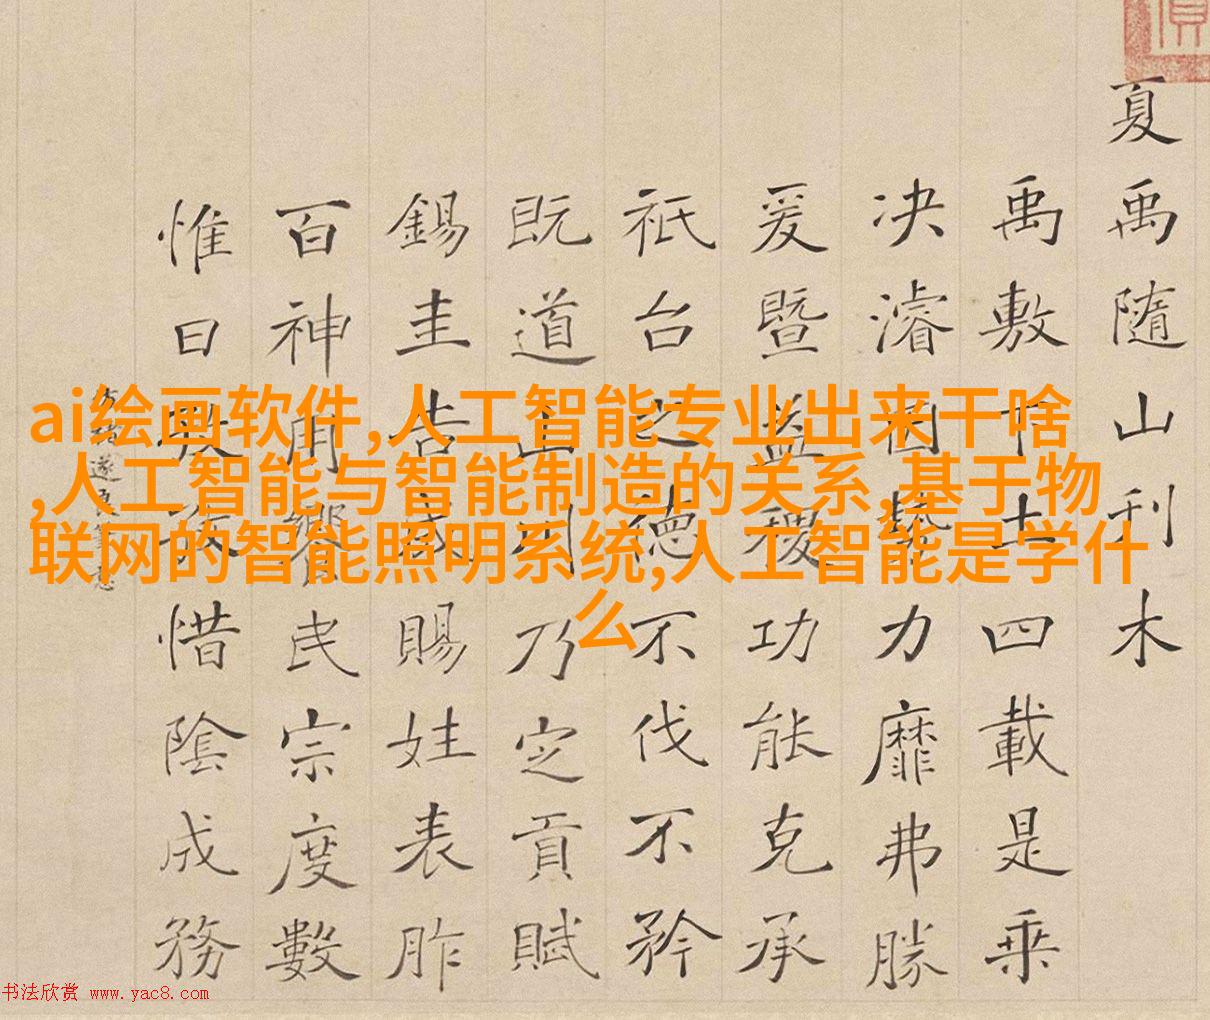 夏禹隨山利木
禹敷下土四載是乘
决濬因勢力靡弗勝
爰暨益稷功能克承
祗台之德不伐不矜
既道山川乃定貢賦
錫圭告成賜姓表胙
百神用饗民宗度數
惟日孜孜惜陰成務
遂良
ai绘画软件,人工智能专业出来干啥
,人工智能与智能制造的关系,基于物
联网的智能照明系统,人工智能是学什
么
书法欣赏 www.yac8.com